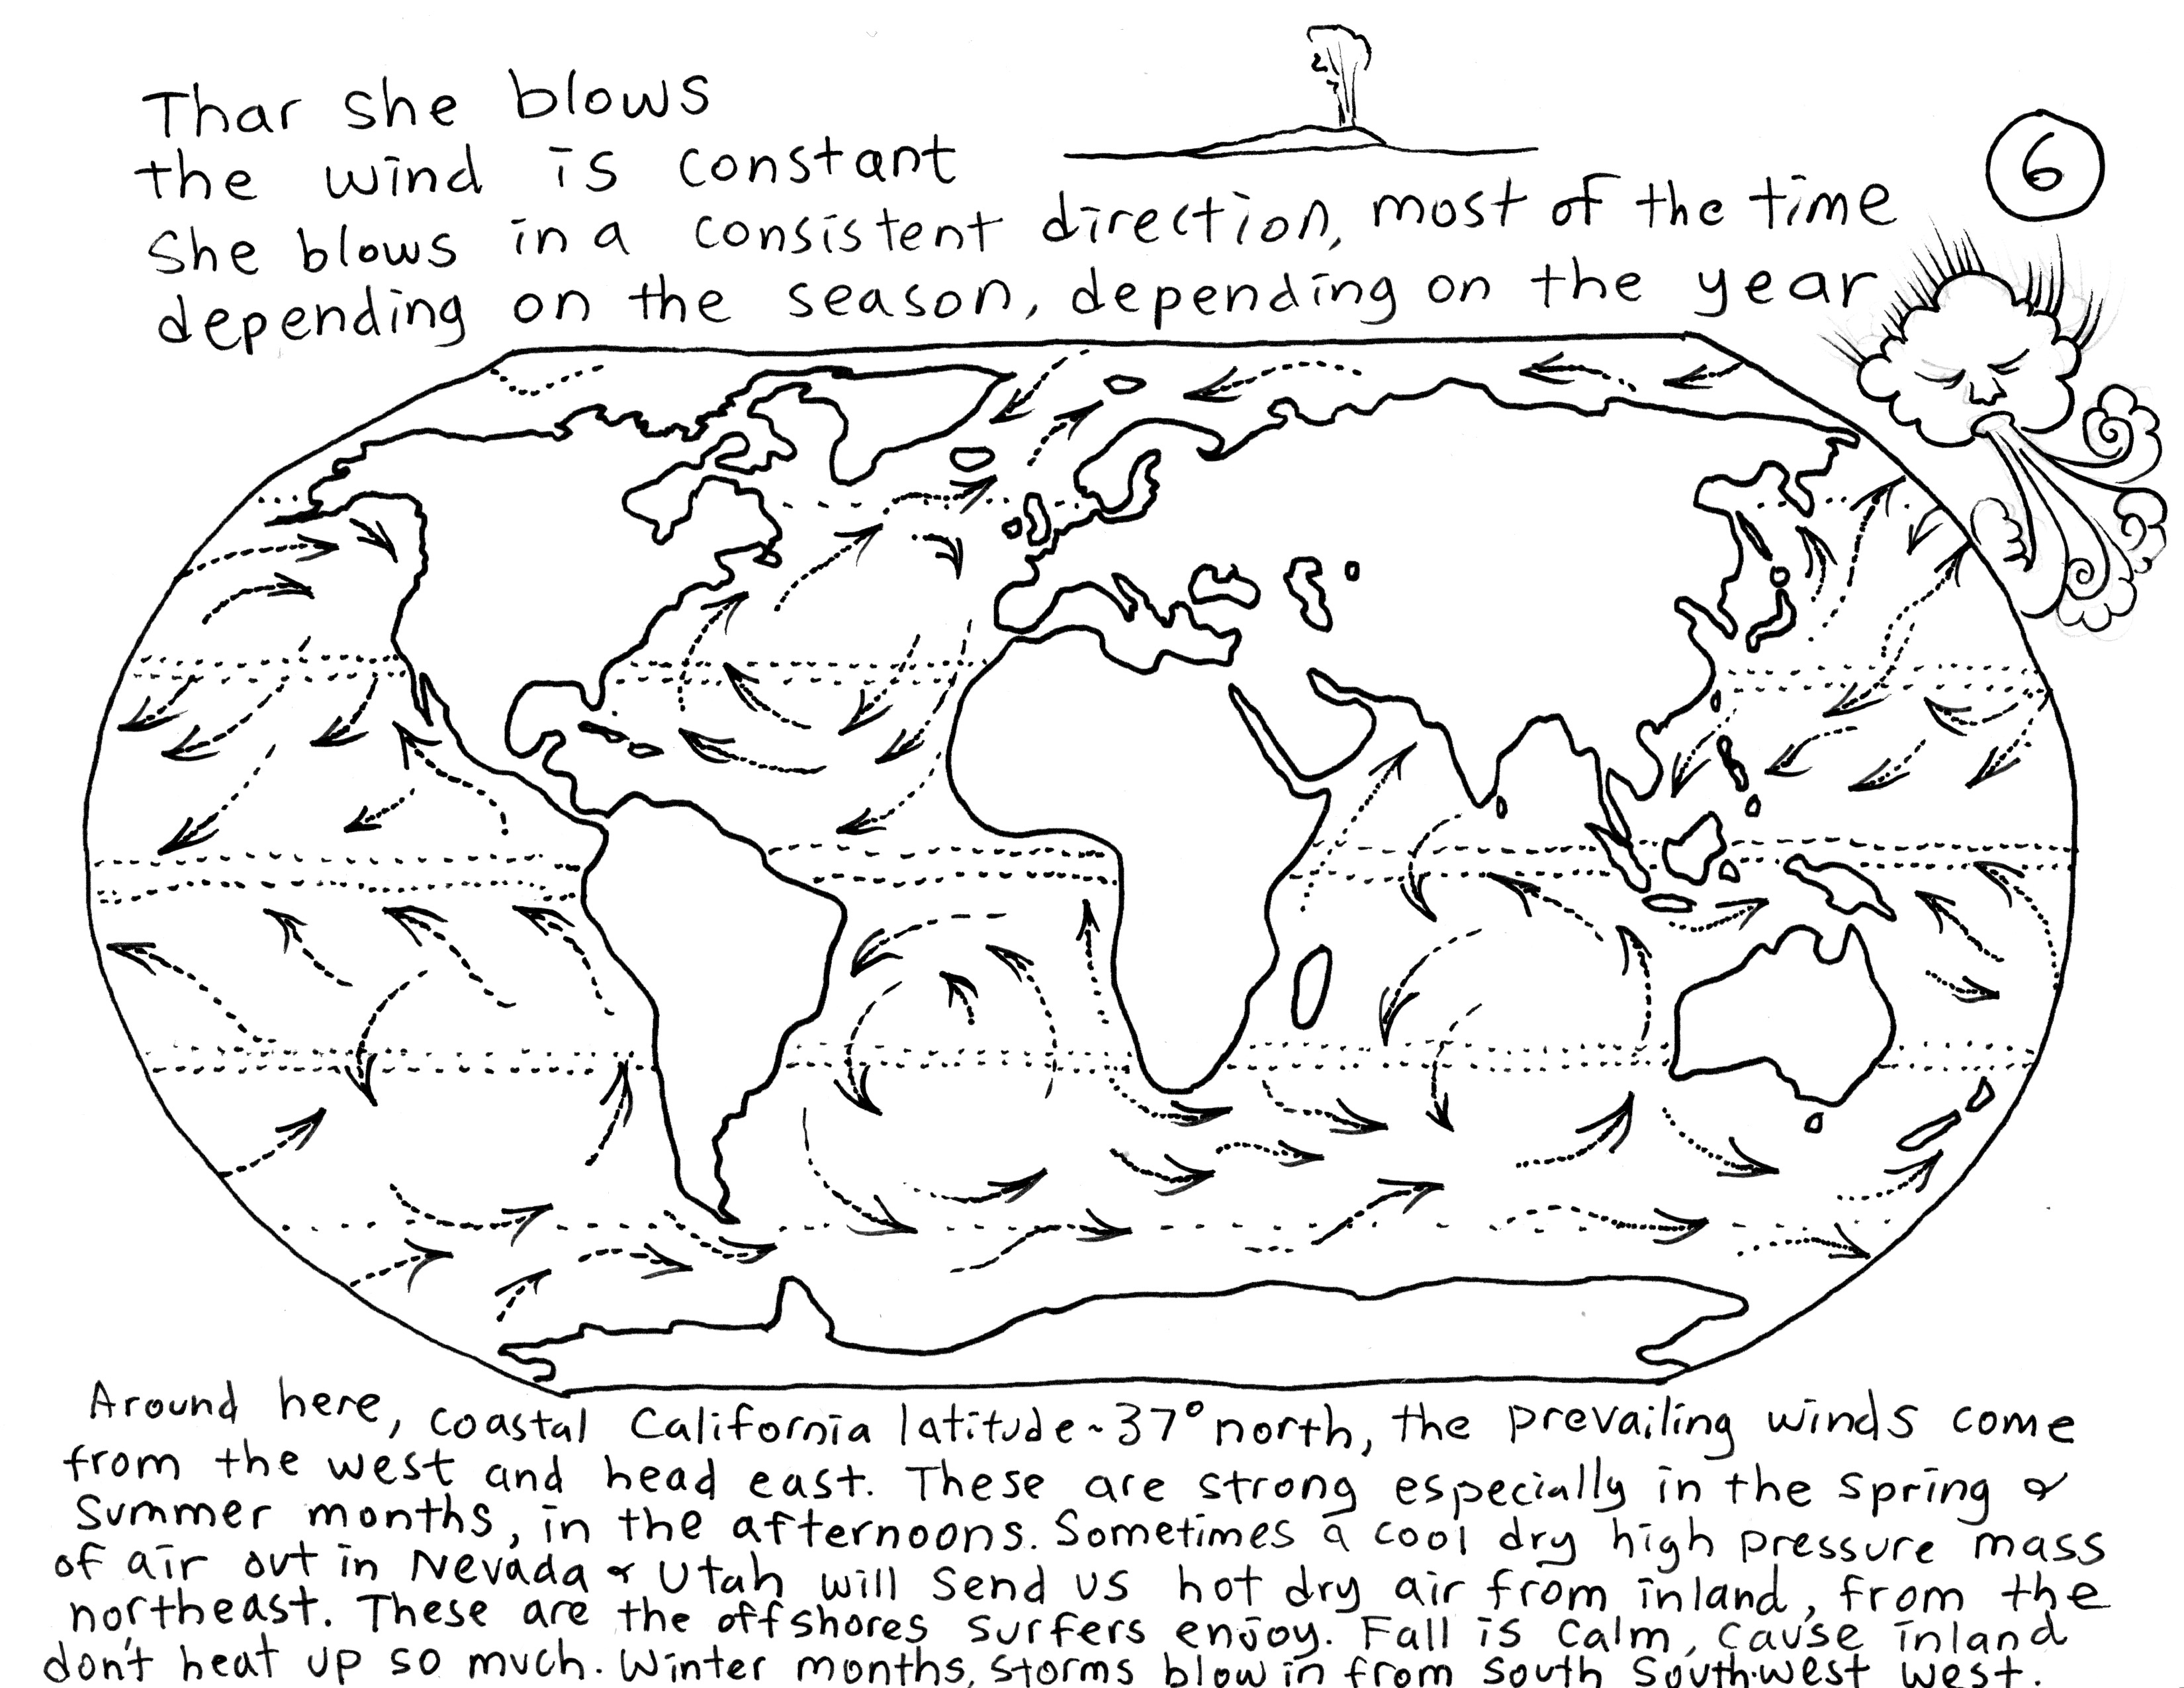 Thar she blows
the wind is constant
6
She blows in a consistent direction, most of the time
depending on the season, depending on the year
Around here, coastal California latitude ~37° north, the prevailing winds come
from the west and head east. These are strong especially in the spring &
Summer months, in the afternoons. Sometimes a cool dry high pressure mass
of air out in Nevada & Utah will send us hot dry air from inland, from the
northeast. These are the offshores surfers enjoy. Fall is calm, cause inland
don't heat up so much. Winter months, storms blow in from south southwest west.